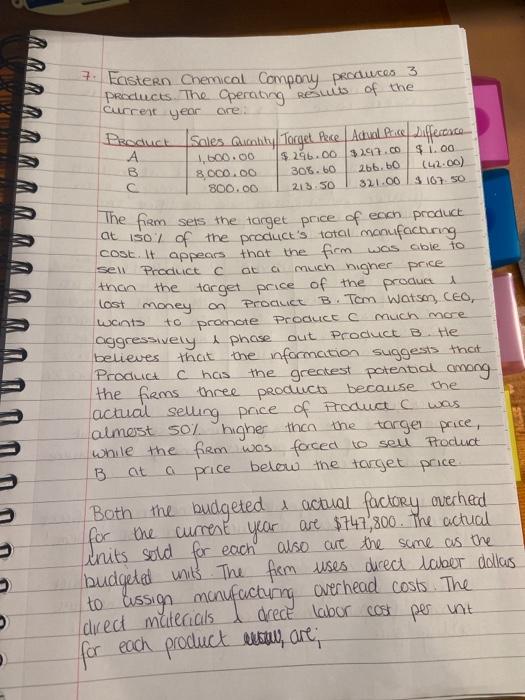 7. Eastern Chemical Company produces 3
products. The Operating Results of the
current year are:
Product Sales Quantity Target Price Actual Price Difference
A 1,600.00 $296.00 $297.00 $1.00
B 8,000.00 308.60 266.60 (42.00)
C 800.00 213.50 321.00 $107.50
The firm sets the target price of each product
at 150% of the product's total manufacturing
cost. It appears that the firm was able to
sell Product C at a much higher price
than the target price of the product &
lost money on Product B. Tom Watson, CEO,
wants to promote Product C much more
aggressively & phase out Product B. He
believes that the information suggests that
Product C has the greatest potential among
the firms three products because the
actual selling price of Product C was
almost 50% higher than the target price,
while the firm was forced to sell Product
B at a price below the target price.
Both the budgeted & actual factory overhead
for the current year are $747,800. The actual
units sold for each also are the same as the
budgeted units. The firm uses direct labor dollars
to assign manufacturing overhead costs. The
direct materials & direct labor cost per unit
for each product are;